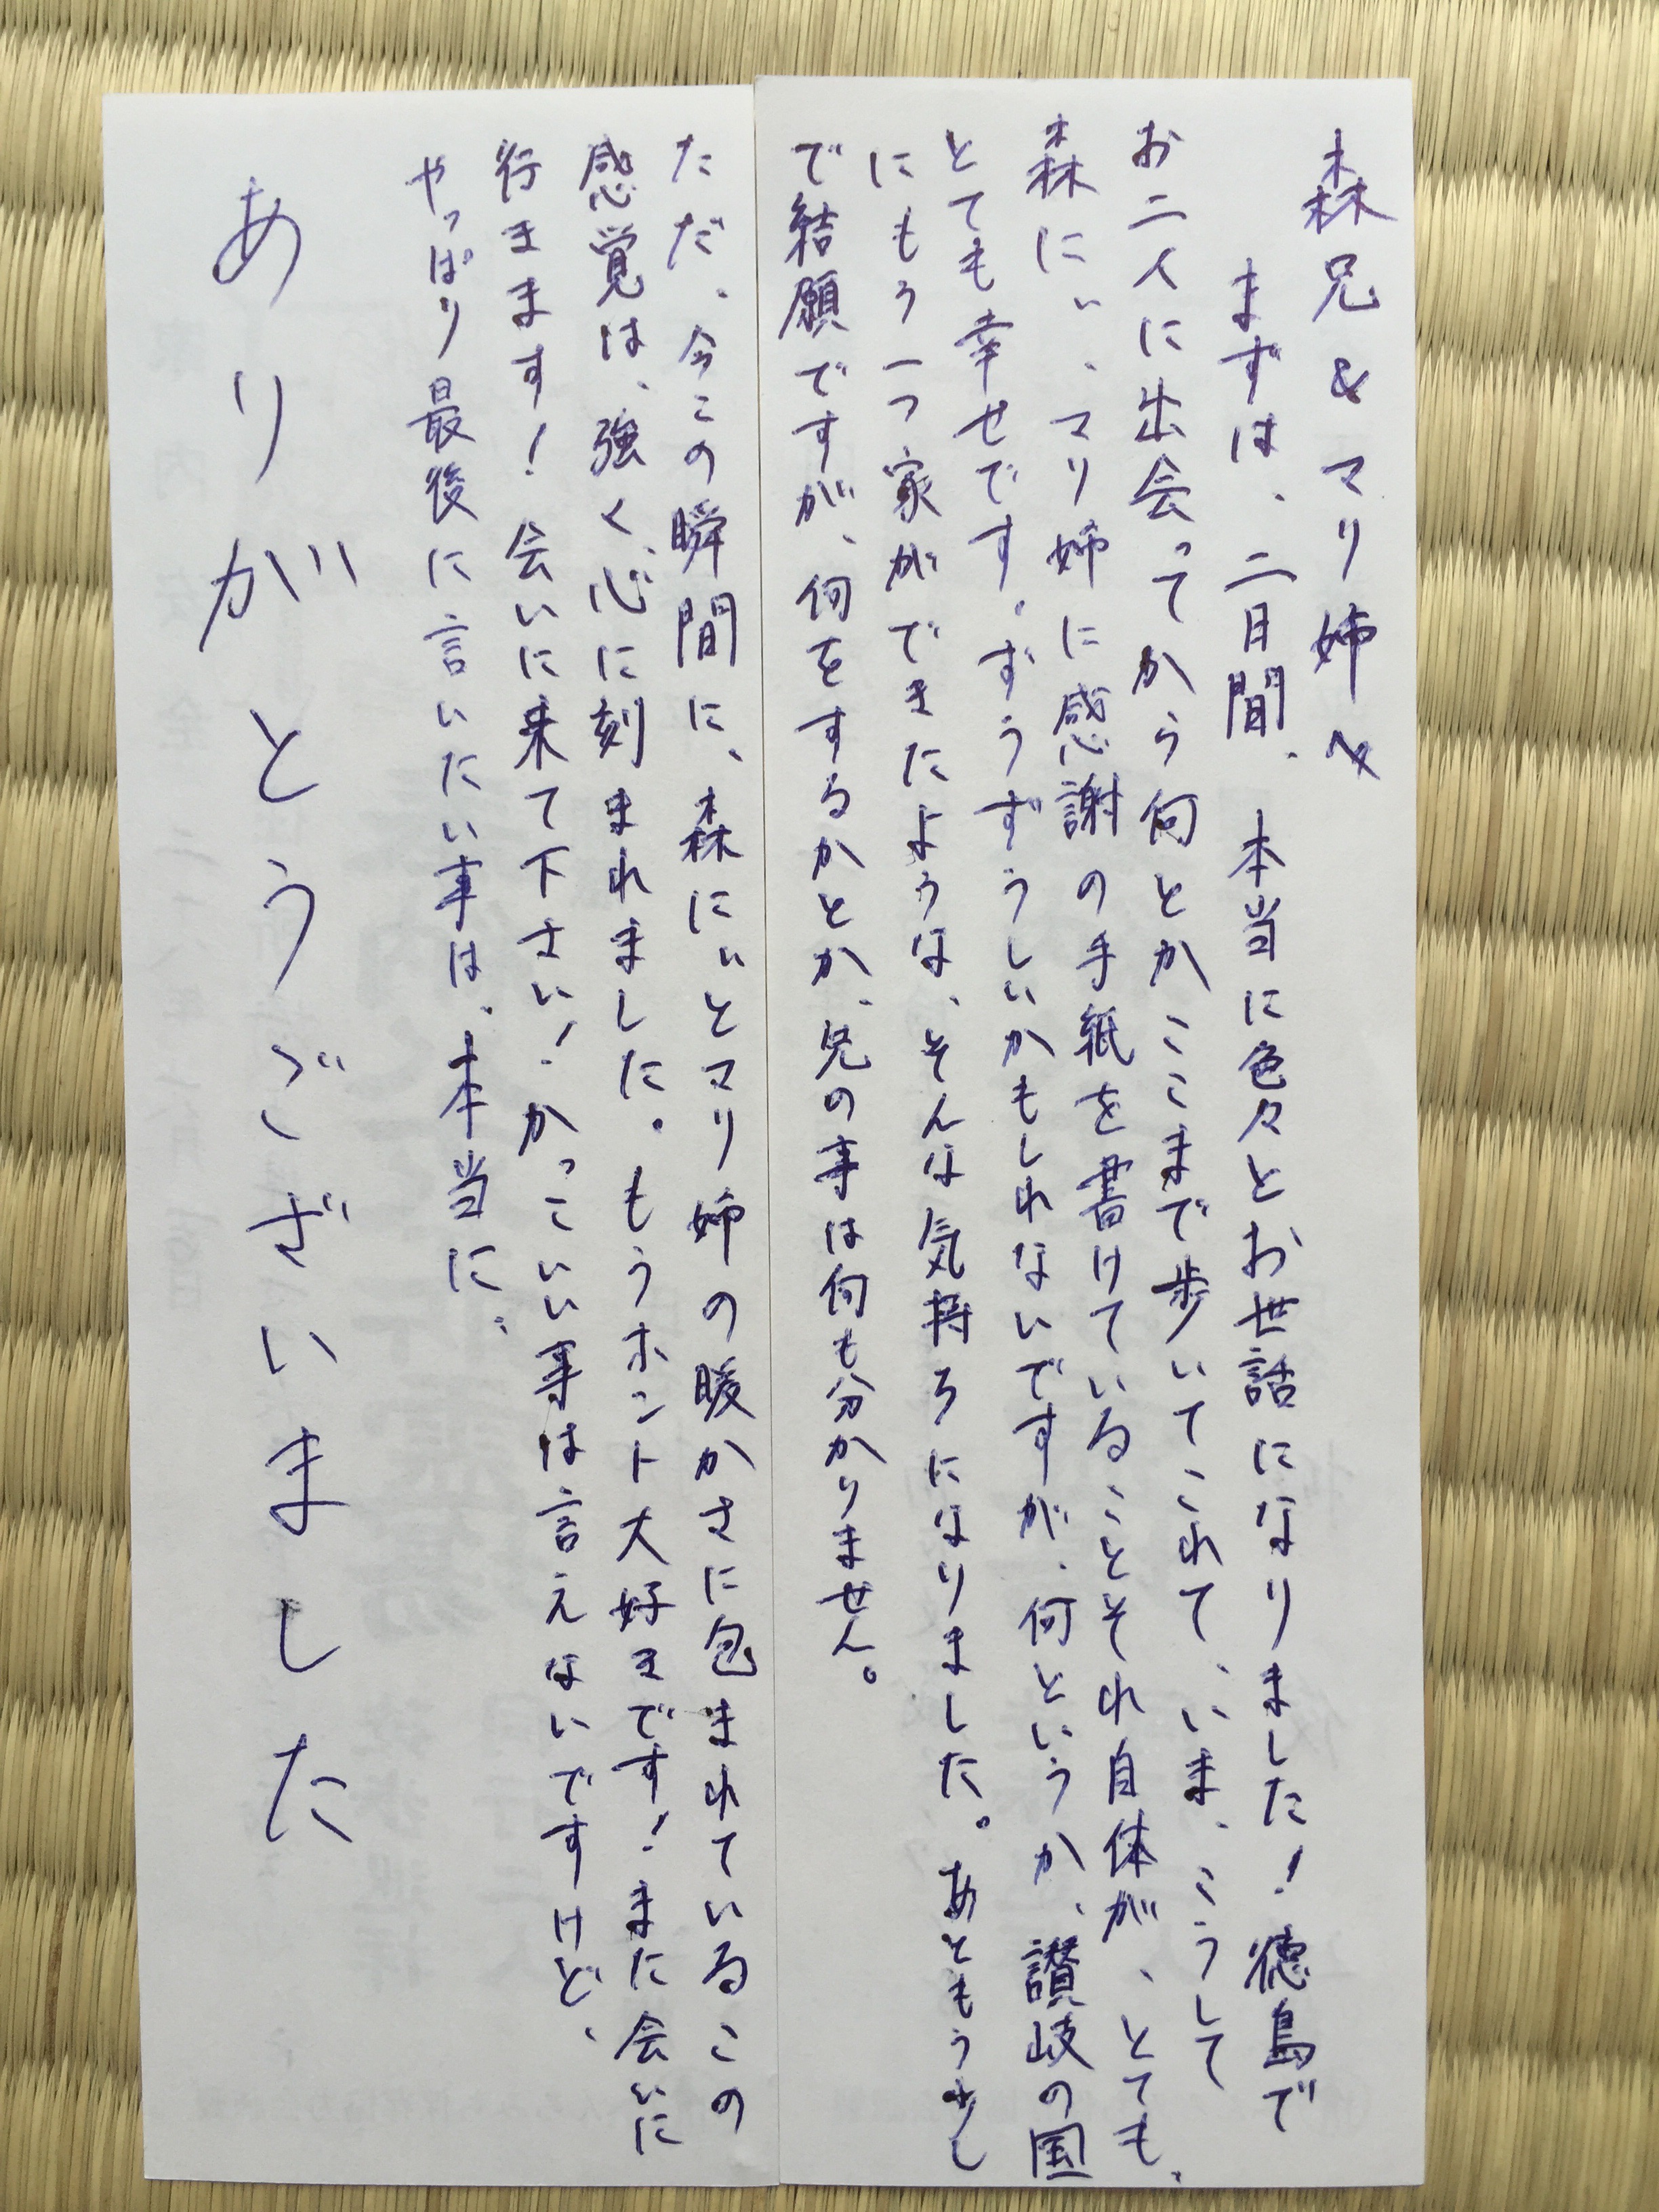 森兄&マリ姉へ
まずは、二日間、本当に色々とお世話になりました!徳島で
お二人に出会ってから何とかここまで歩いてこれて、いま、こうして
森にぃ、マリ姉に感謝の手紙を書けていることそれ自体が、とても、
とても幸せです。ずうずうしいかもしれないですが、何というか、讃岐の国
にもう一つ家ができたような、そんな気持ちになりました。あともう少し
で結願ですが、何をするかとか、先の事は何も分かりません。
ただ、今この瞬間に、森にぃとマリ姉の暖かさに包まれているこの
感覚は、強く、心に刻まれました。もうホント大好きです!また会いに
行きます!会いに来て下さい!かっこいい事は言えないですけど、
やっぱり最後に言いたい事は、本当に、
ありがとうございました